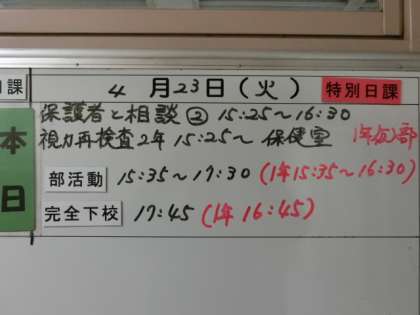 日課 4月23日(火) 特別日課
本日
保護者と相談② 15:25～16:30
視力再検査2年 15:25～ 保健室
部活動 15:35～17:30 (1年15:35～16:30)
完全下校 17:45 (1年 16:45)